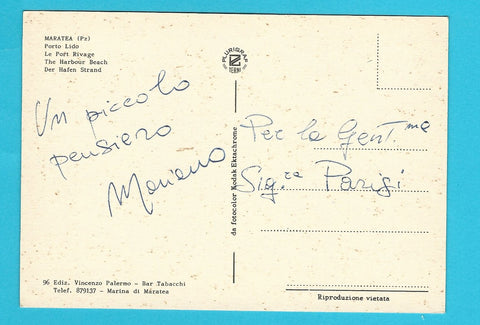 MARATEA (Pz)
Porto Lido
Le Port Rivage
The Harbour Beach
Der Hafen Strand
PLURIGRAF
TERNI
Un piccolo
pensiero
Mariano
da fotocolor Kodak Ektachrome
Per la Gent.ma
Sig.ra Parisi
96 Ediz. Vincenzo Palermo - Bar Tabacchi
Telef. 879137 - Marina di Máratea
Riproduzione vietata